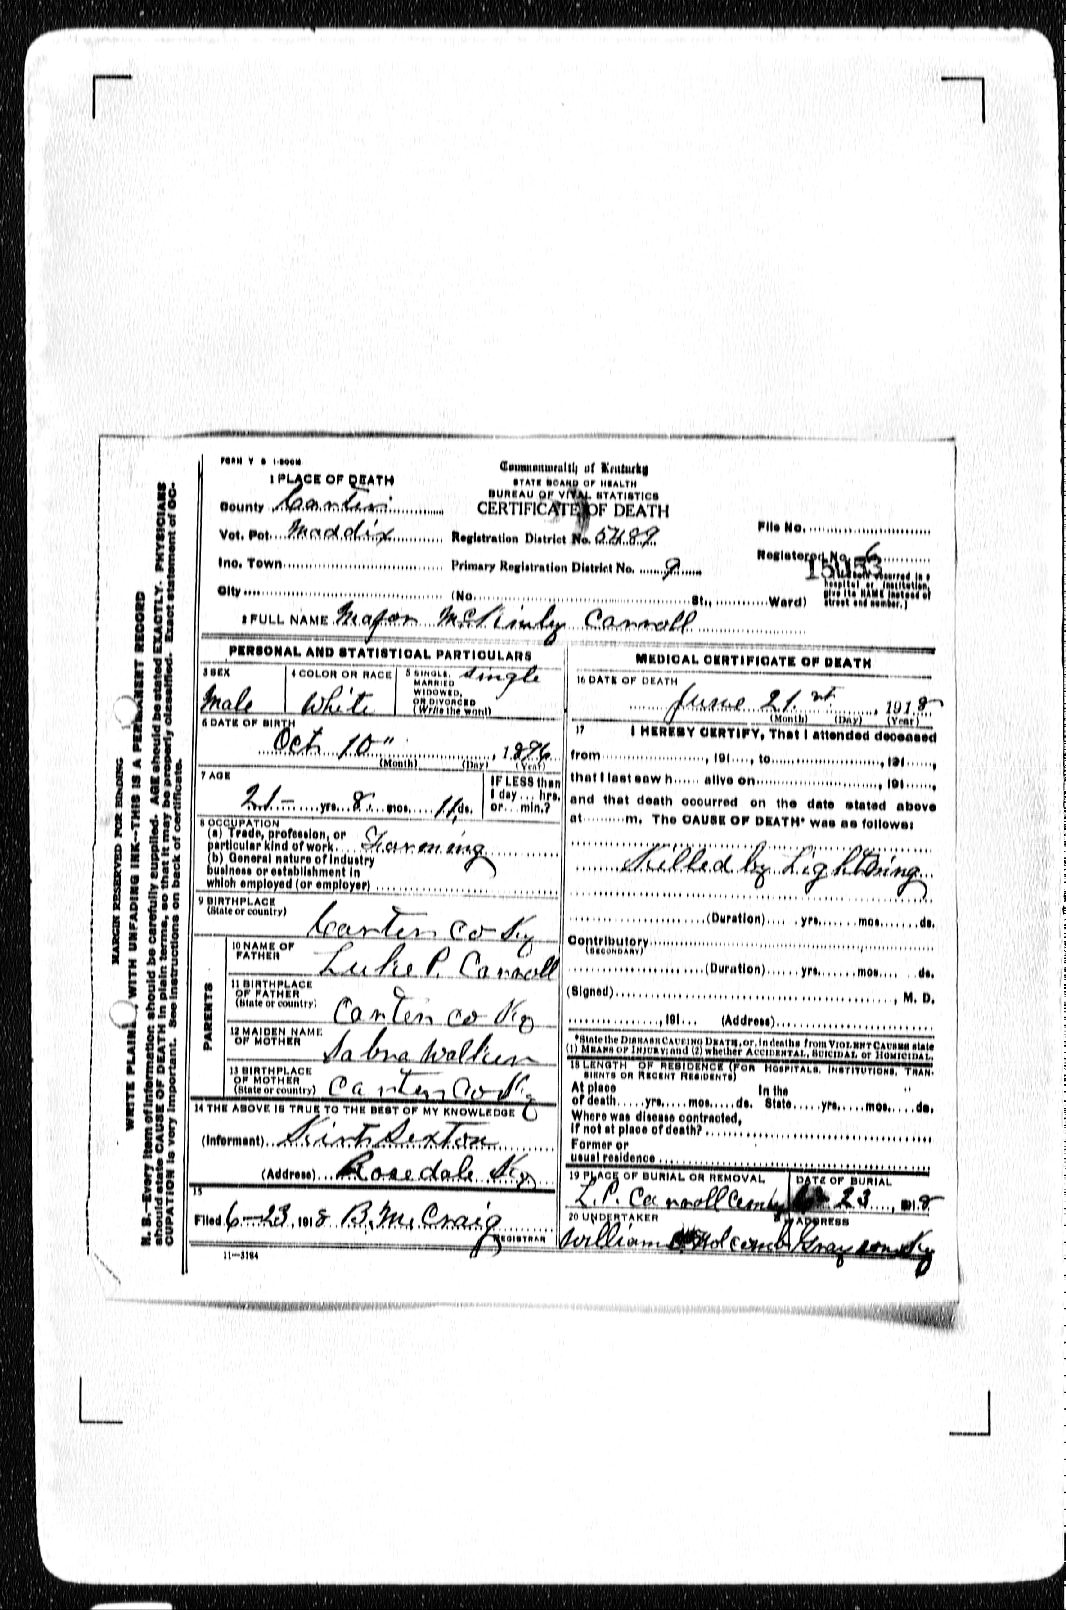 FORM V S 1-500M
Commonwealth of Kentucky
STATE BOARD OF HEALTH
BUREAU OF VITAL STATISTICS
CERTIFICATE OF DEATH
1 PLACE OF DEATH
County Carter
Vot. Pct. Maddix Registration District No. 5489 File No.
Inc. Town Primary Registration District No. 9 Registered No. 6
City (No. St., Ward)
hospital or institution, give its NAME instead of street and number.]
2 FULL NAME Major McKinley Carroll
PERSONAL AND STATISTICAL PARTICULARS
3 SEX
Male
4 COLOR OR RACE
White
5 SINGLE, MARRIED WIDOWED, OR DIVORCED (Write the word)
Single
6 DATE OF BIRTH
Oct 10" , 1896
(Month) (Day) (Year)
7 AGE
21 yrs. 8 mos. 11 ds.
IF LESS than
1 day ... hrs.
or ... min.?
8 OCCUPATION
(a) Trade, profession, or
particular kind of work Farming
(b) General nature of industry
business or establishment in
which employed (or employer)
9 BIRTHPLACE
(State or country)
Carter Co Ky
PARENTS
10 NAME OF FATHER
Luke P. Carroll
11 BIRTHPLACE OF FATHER
(State or country)
Carter Co Ky
12 MAIDEN NAME OF MOTHER
13 BIRTHPLACE OF MOTHER
(State or country)
Carter Co Ky
14 THE ABOVE IS TRUE TO THE BEST OF MY KNOWLEDGE
(Informant) Sexton
(Address) Rosedale Ky
15
Filed 6-23, 1918 B. M. Craig
REGISTRAR
11-3184
MEDICAL CERTIFICATE OF DEATH
16 DATE OF DEATH
June 21 st , 1918
(Month) (Day) (Year)
17 I HEREBY CERTIFY, That I attended deceased
from , 191 , to , 191 ,
that I last saw h alive on , 191 ,
and that death occurred on the date stated above
at m. The CAUSE OF DEATH* was as follows:
Killed by Lightning
(Duration) yrs. mos. ds.
Contributory
(SECONDARY)
(Duration) yrs. mos. ds.
(Signed) , M. D.
, 191 (Address)
*State the DISEASE CAUSING DEATH, or, in deaths from VIOLENT CAUSES state
(1) MEANS OF INJURY; and (2) whether ACCIDENTAL, SUICIDAL or HOMICIDAL.
18 LENGTH OF RESIDENCE (FOR HOSPITALS, INSTITUTIONS, TRANSIENTS OR RECENT RESIDENTS)
At place In the
of death yrs. mos. ds. State yrs. mos. ds.
Where was disease contracted,
if not at place of death?
Former or
usual residence
19 PLACE OF BURIAL OR REMOVAL
L. P. Carroll
DATE OF BURIAL
23, 1918
20 UNDERTAKER
William Holcomb
ADDRESS
Grayson Ky
MARGIN RESERVED FOR BINDING
WRITE PLAINLY, WITH UNFADING INK--THIS IS A PERMANENT RECORD
N. B.--Every item of information should be carefully supplied. AGE should be stated EXACTLY. PHYSICIANS
should state CAUSE OF DEATH in plain terms, so that it may be properly classified. Exact statement of OC-
CUPATION is very important. See instructions on back of certificate.